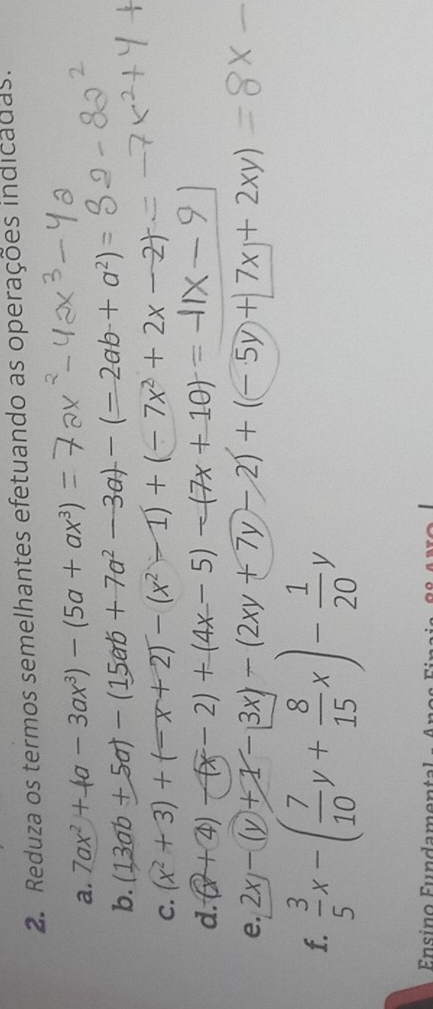 2. Reduza os termos semelhantes efetuando as operações indicadas.
a. 7ax² + (a − 3ax³) − (5a + ax³) = 7ax² − 4ax³ − 4a
b. (13ab + 5a) − (15ab + 7a² − 3a) − (− 2ab + a²) = 8a − 8a²
c. (x² + 3) + (− x + 2) − (x² − 1) + (− 7x² + 2x − 2) = −7x² + 4 +
d. (x + 4) − (x − 2) + (4x − 5) − (7x + 10) = −11x − 9
e. 2x − (y + 1 − 3x) − (2xy + 7y − 2) + (− 5y + 7x + 2xy) = 8x −
f. 3/5 x − (7/10 y + 8/15 x) − 1/20 y
Ensino Fundamental - Anos Finais